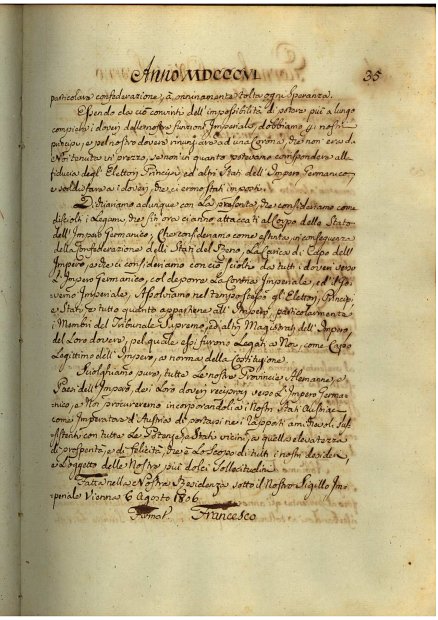 Anno MDCCCVI.
35
particolare confederazione, à onninamente tolta ogni speranza.
Essendo da ciò convinti dell'impossibilità di potere più a lungo
compiere i doveri delle nostre funzioni Imperiali, dobbiamo pei nostri
principj, e pel nostro dovere rinunziare ad una Corona, che non era da
Noi tenuta in prezzo, se non in quanto potevamo corrispondere alla
fiducia degl'Elettori, Principi ed altri Stati dell'Impero Germanico,
e soddisfare a i doveri, che ci erano stati imposti.
Dichiariamo adunque con la presente, che consideriamo come
disciolti i Legami, che fin ora ci anno attaccati al Corpo dello Stato
dell'Impero Germanico, Che consideriamo come estinta in conseguenza
della Confederazione degli Stati del Reno, La Carica di Capo dell'
Impero, e che ci consideriamo con ciò sciolti da tutti i doveri verso
l'Impero Germanico, col deporre La Corona Imperiale, ed il Go-
verno Imperiale. Assolviamo nel tempo stesso gl'Elettori, Principi,
e Stati e tutto quanto appartiene all'Impero, particolarmente
i Membri del Tribunale Supremo, ed altri Magistrati dell'Impero,
del Loro dovere, pel quale essi furono Legati a Noi, come Capo
Legittimo dell'Impero, a norma della Costituzione.
Sciolghiamo pure, tutte Le nostre Provincie Alemanne, e
Paesi dell'Impero, dei Loro doveri reciproci verso L'Impero Germa-
nico, e Noi procureremo incorporandoli a i Nostri Stati Austriaci
come Imperatore d'Austria di portarsi nei rapporti amichevoli sus-
sistenti con tutte Le Potenze, e Stati vicini, a quella elevatezza
di prosperità, e di felicità, che è Lo scopo di tutti i nostri desiderj,
e L'oggetto delle Nostre più dolci sollecitudini.
Fatta nella Nostra Residenza sotto il Nostro Sigillo Im-
periale Vienna 6 Agosto 1806.
Firmat. Francesco